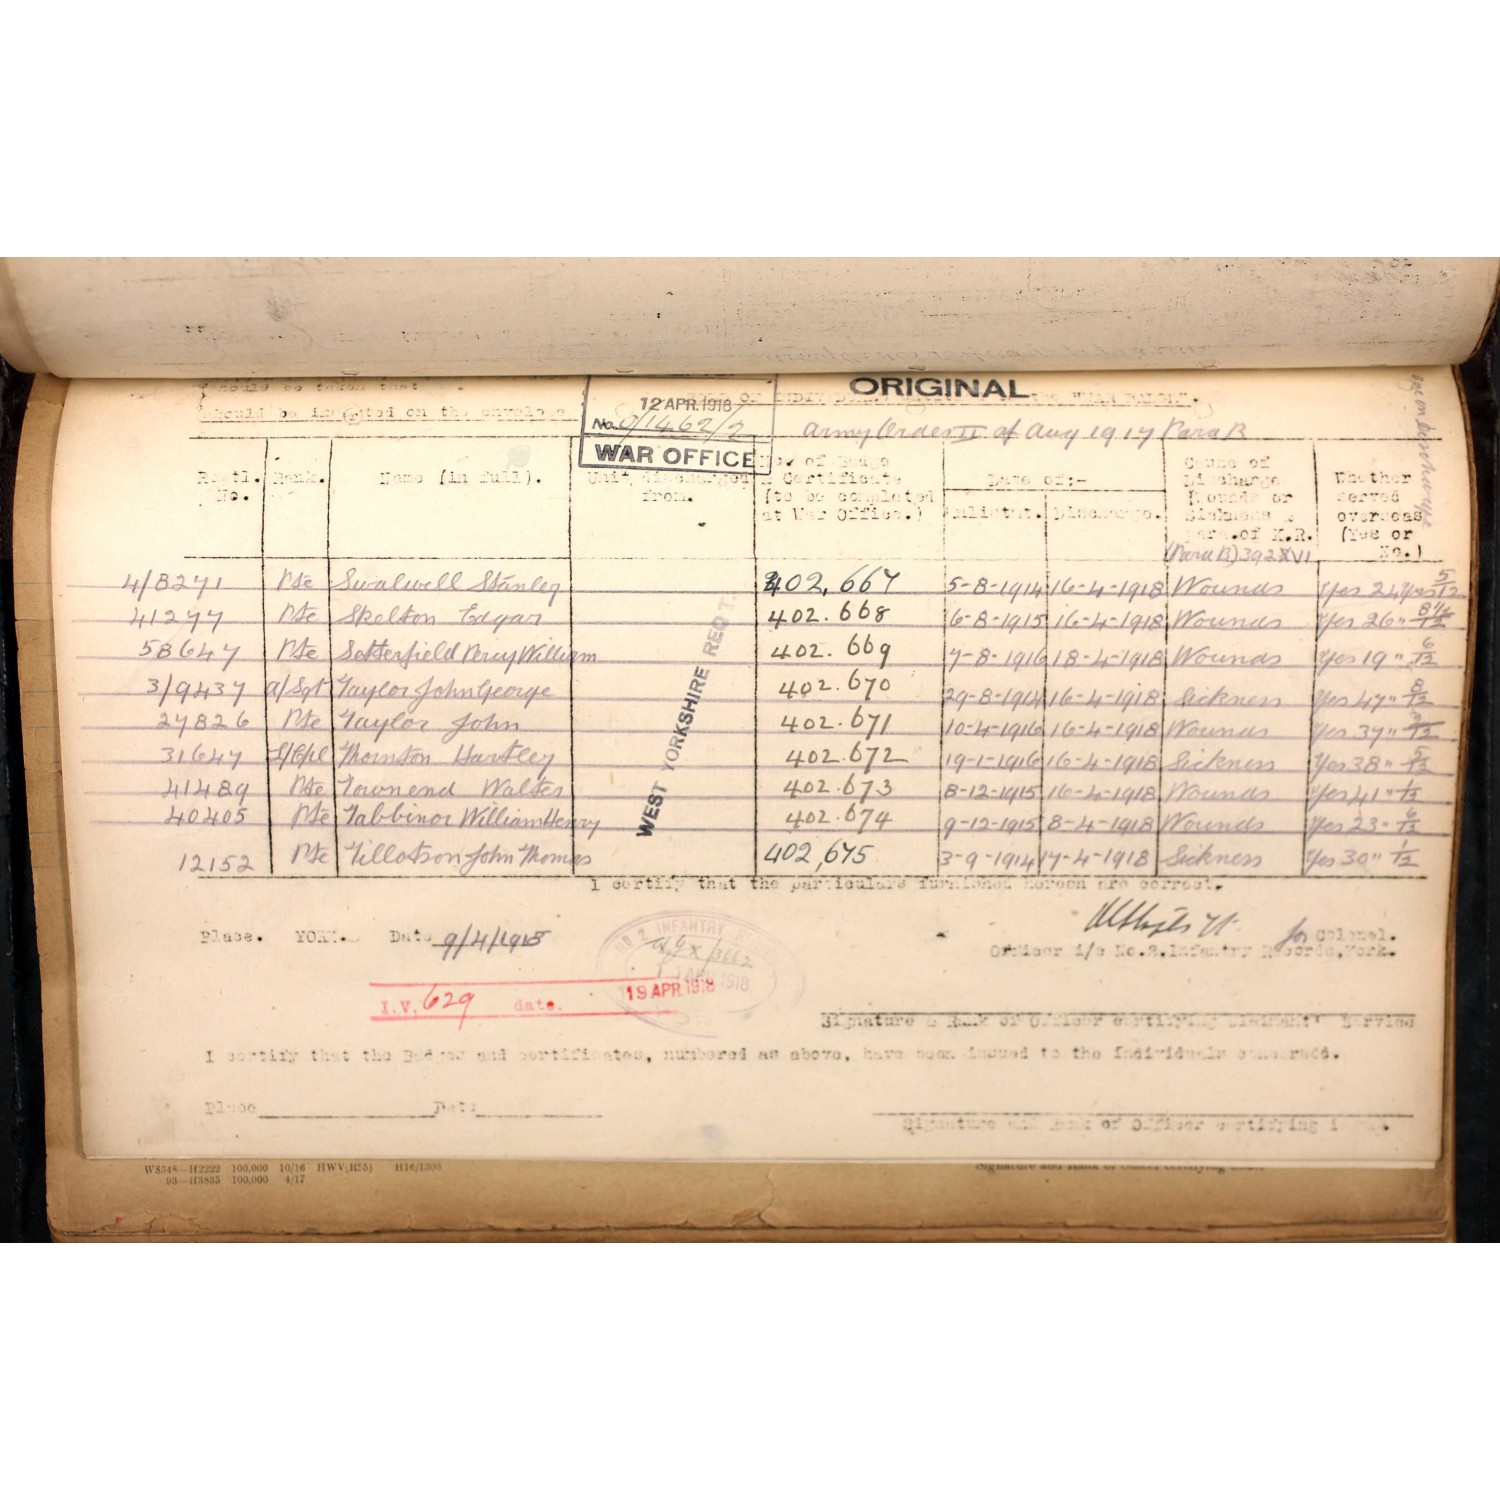 should be taken that
should be inserted on the envelope
ORIGINAL
12 APR. 1918
No. 9/1462/2
WAR OFFICE
Army Order II of Aug 1917 Para B
Regtl. No. Rank. Name (in full). Unit discharged from. Nos. of Badge & Certificate (to be completed at War Office.) Date of:- Enlistmt. Discharge. Cause of Discharge Wounds or Sickness & Para. of K.R. (Para B) 392 XVI Whether served overseas (Yes or No.)
4/8271 Pte Swalwell Stanley 402,667 5-8-1914 16-4-1918 Wounds Yes 24 yrs 5/12
41277 Pte Skelton Edgar 402.668 6-8-1915 16-4-1918 Wounds Yes 26 "
58647 Pte Setterfield Percy William 402.669 7-8-1916 18-4-1918 Wounds Yes 19 " 6/12
3/9437 a/Sgt Taylor John George 402.670 29-8-1914 16-4-1918 Sickness Yes 47 " 8/12
27826 Pte Taylor John 402.671 10-4-1916 16-4-1918 Wounds Yes 37 "
31647 L/Cpl Thornton Hartley 402.672 19-1-1916 16-4-1918 Sickness Yes 38 " 5/12
41489 Pte Townend Walter 402.673 8-12-1915 16-4-1918 Wounds Yes 41 " 1/12
40405 Pte Tabbinor William Henry 402.674 9-12-1915 8-4-1918 Wounds Yes 23 " 6/12
12152 Pte Tillotson John Thomas 402,675 3-9-1914 17-4-1918 Sickness Yes 30 " 1/12
WEST YORKSHIRE REGT.
I certify that the particulars furnished hereon are correct.
Place. YORK. Date 9/4/1918
for Colonel.
Officer i/c No.2.Infantry Records,York.
No 2 INFANTRY
APR 1918
I.V. 629 date. 19 APR. 1918
Signature & Rank of Officer certifying Claimant' Service
I certify that the Badges and certificates, numbered as above, have been issued to the individuals concerned.
Place Date
Signature and Rank of Officer certifying issue.
W8348—H2222 100,000 10/16 HWV(R55) H16/1303
93—H3835 100,000 4/17